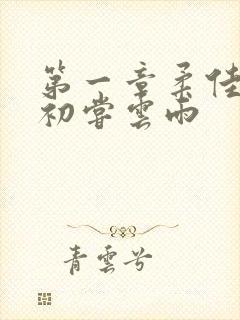 第一章柔佳
初嘗雲雨
青雲兮